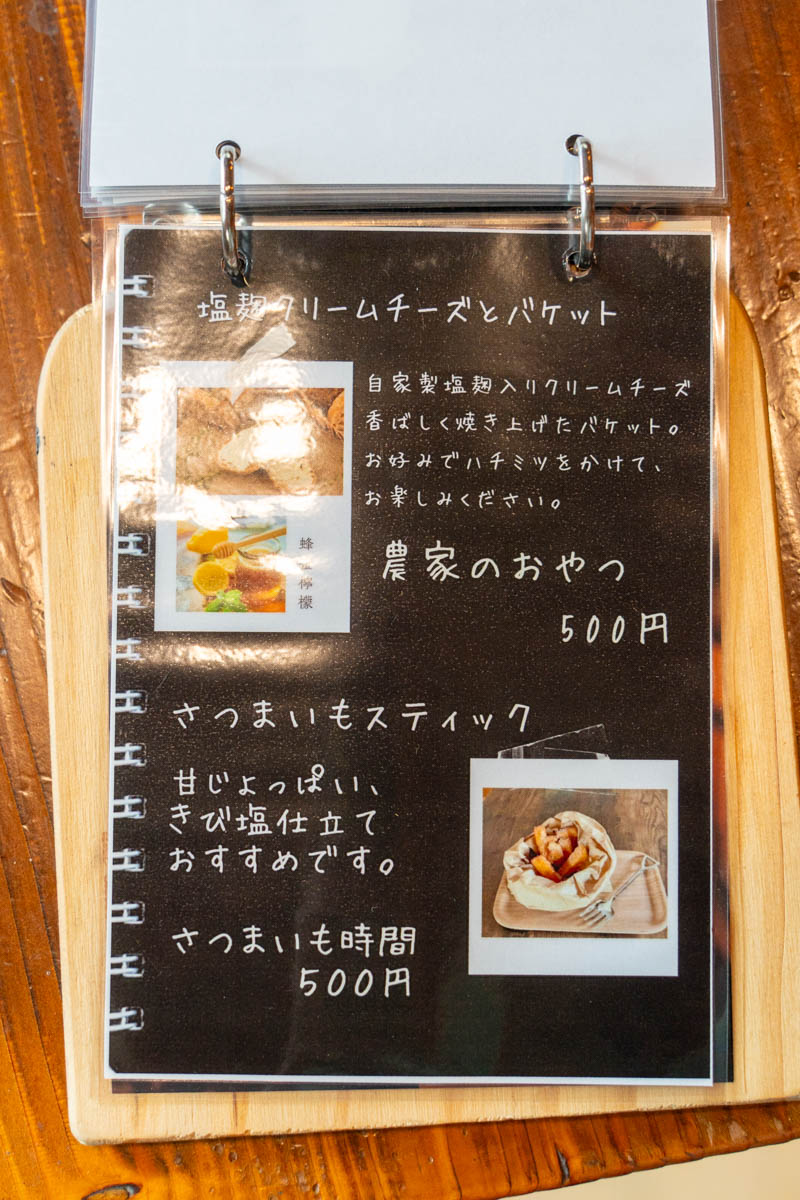 塩麹クリームチーズとバケット
自家製塩麹入りクリームチーズ
香ばしく焼き上げたバケット。
お好みでハチミツをかけて、
お楽しみください。
蜂 檸檬
農家のおやつ
500円
さつまいもスティック
甘じょっぱい、
きび塩仕立て
おすすめです。
さつまいも時間
500円